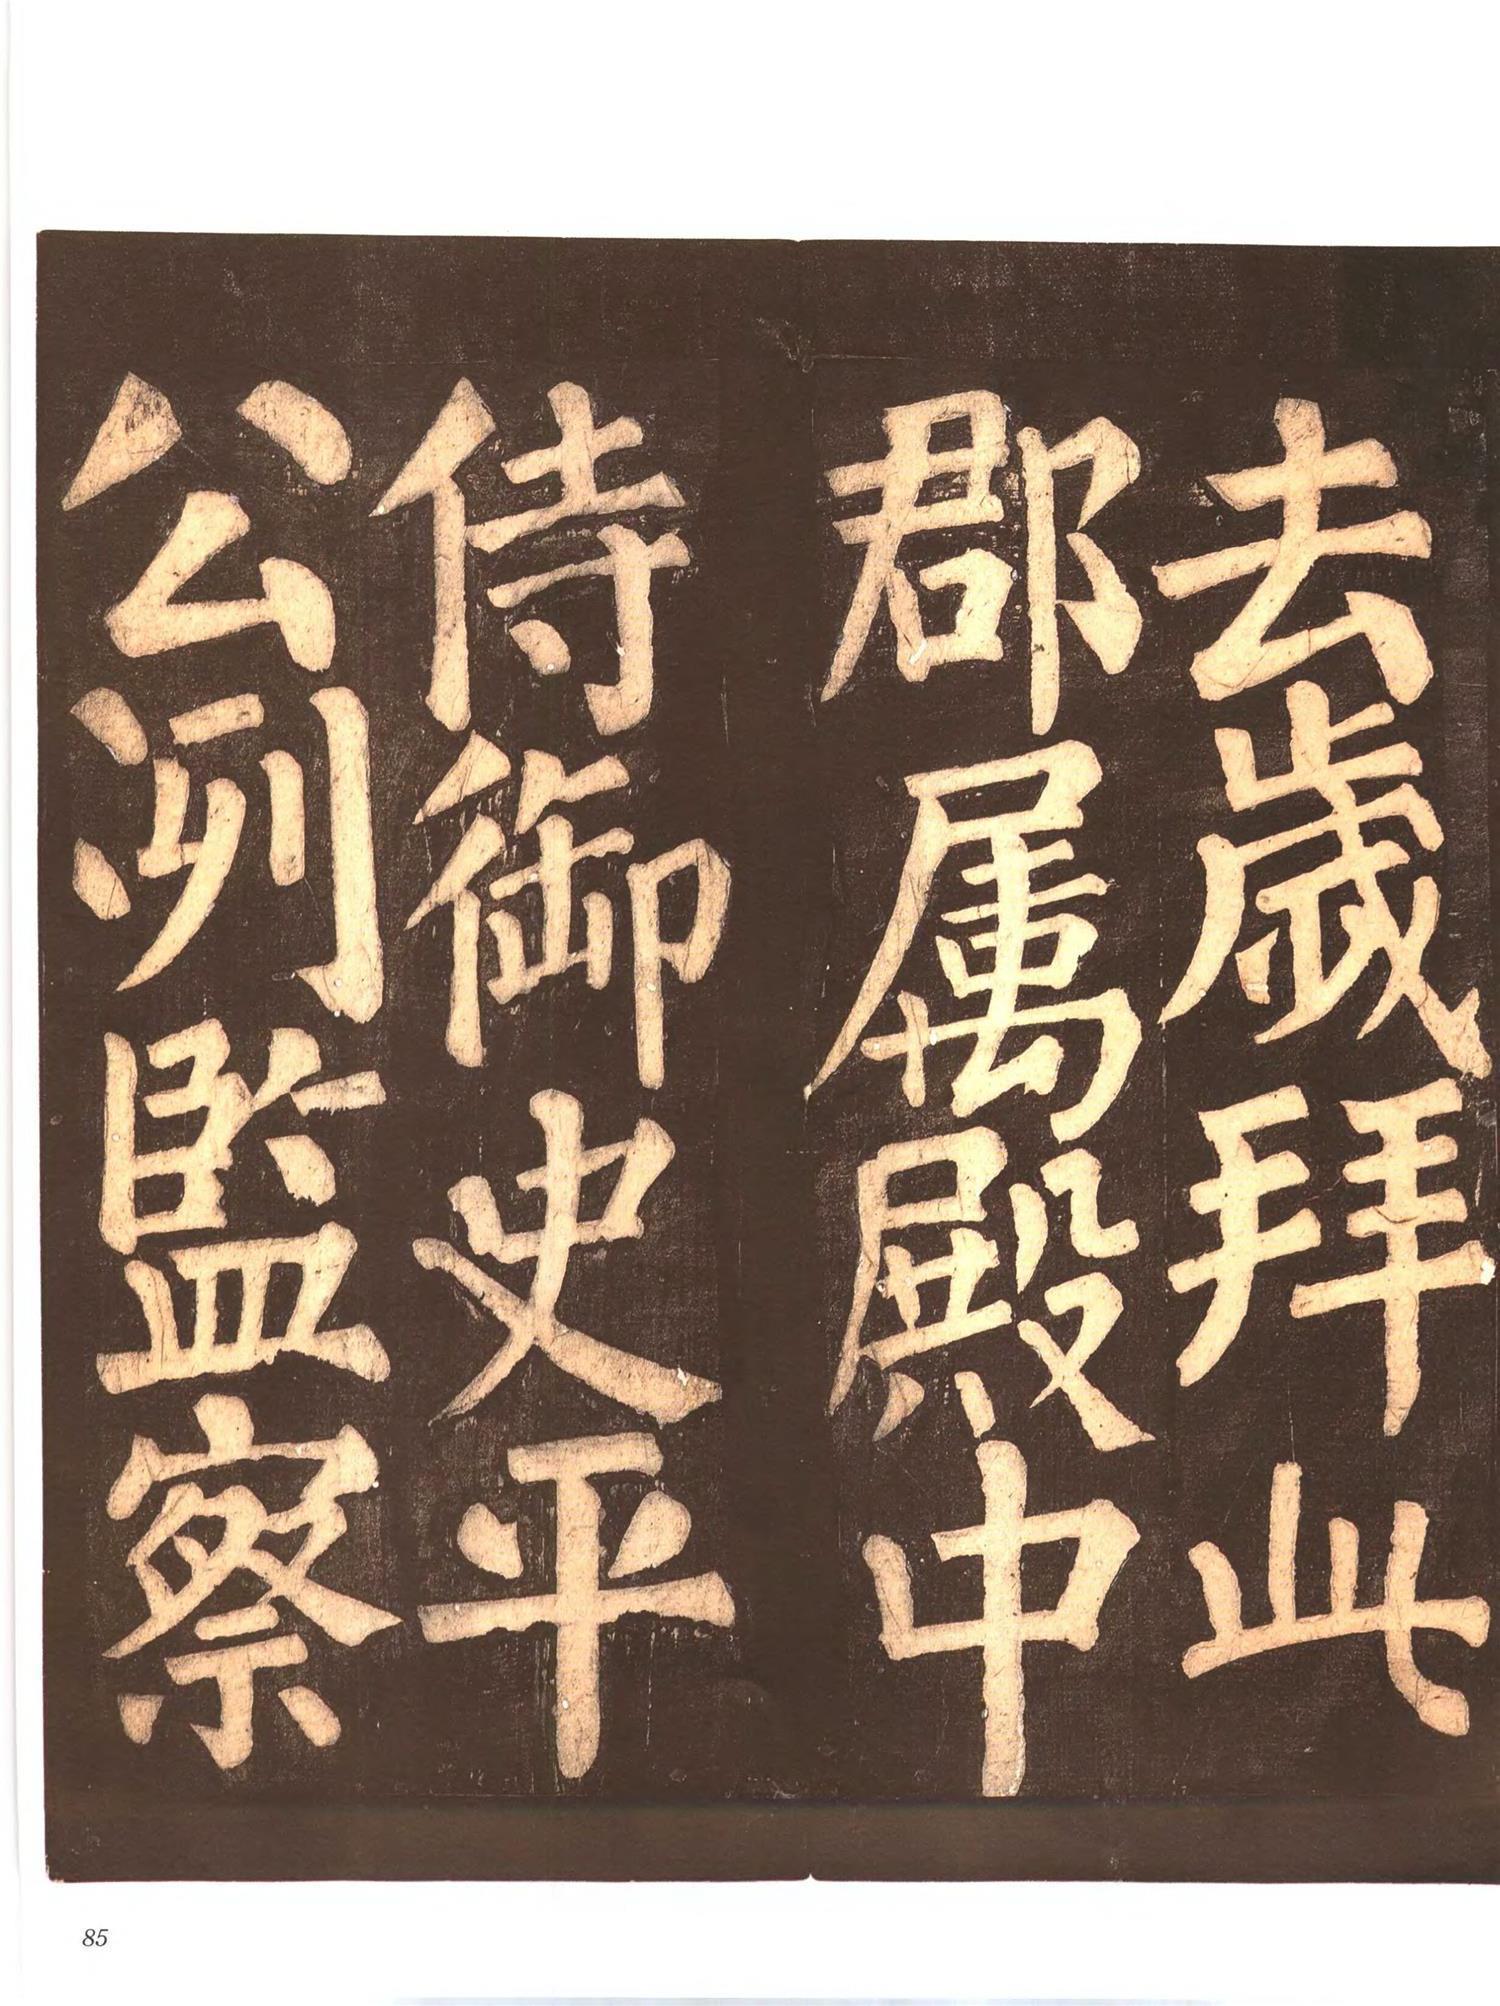 去歲拜此
郡属殿中
侍御史平
公冽監察
85